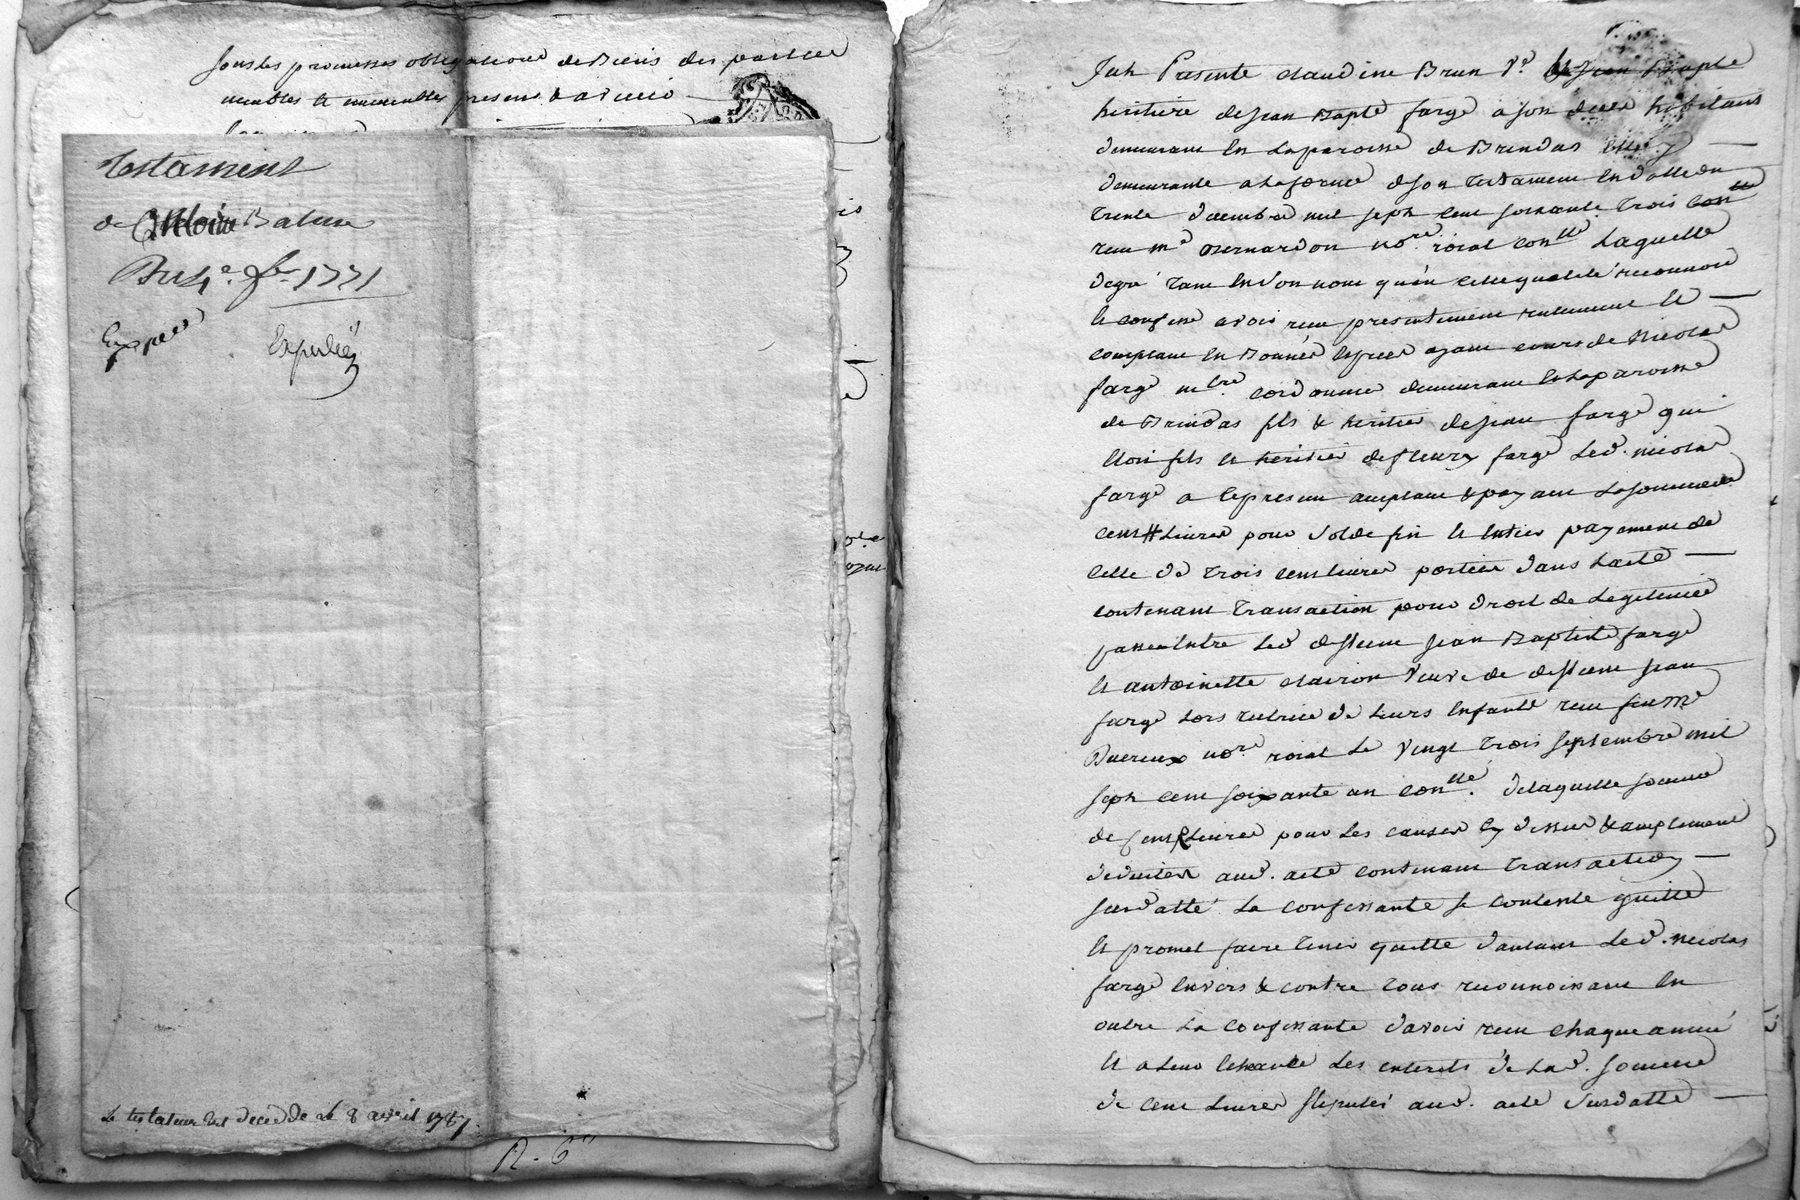 sous les promesses obligations de Biens des parties
meubles et immeubles presens & avenir
Testament
de Antoine
Du 4e. 1771
Expedié
Le testateur est decedde le 8 avril 1787.
R. 6
fut Presente claudine Brun Ve. de Jean Bapte
heritiere de jean Bapte farge a son deces habitant
demeurant en la paroisse de Brindas
demeurante a la forme de son testament en datte du
trente decembre mil sept cent soixante trois
receu me Bernardon nore. roial conllé Laquelle
degré tant en son nom qu'en cette qualité reconnoit
et confesse avoir receu presentement reelement et
comptant en Bonnes especes ayant cours de Nicolas
farge mtre. cordonnier demeurant en la paroisse
de Brindas fils & heritier de jean farge qui
etoit fils et heritier de fleury farge Led. nicolas
farge a ce present acceptant & payant la somme de
cent Livres pour solde fin et entier payement de
celle de trois cent livres portée dans L'acte
contenant transaction pour droit de Legitime
passé entre Led deffunt jean Baptiste farge
et antoinette clairon veuve de deffunt jean
farge Lors tutrice de Leurs enfants receu feu me
nore. roial Le vingt trois septembre mil
sept cent soixante un conllé. de laquelle somme
de cent Livres pour Les causes cy dessus & amplement
deduites aud. acte contenant transaction
susdatté La confessante se contente quitte
et promet faire tenir quitte d'autant Led. nicolas
farge envers & contre tous reconnoissant en
outre La confessante d'avoir receu chaque année
et a Leur echeance Les interets de Lad. somme
de cent Livres stipulés aud. acte susdatté